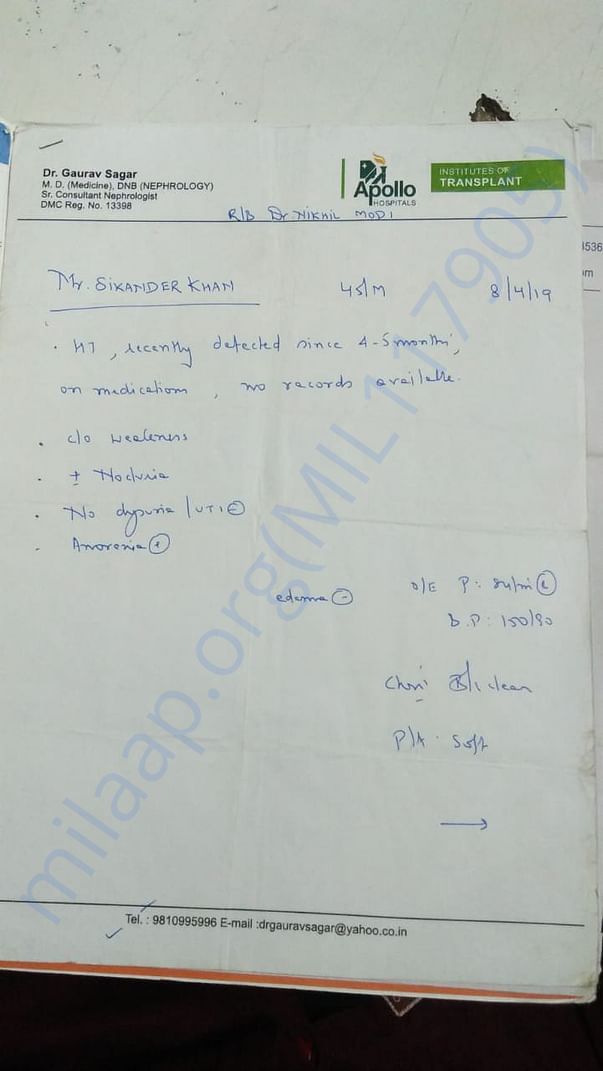 Dr. Gaurav Sagar
M. D. (Medicine), DNB (NEPHROLOGY)
Sr. Consultant Nephrologist
DMC Reg. No. 13398
Apollo
HOSPITALS
INSTITUTES OF
TRANSPLANT
R/B Dr NIKHIL MODI
4536
om
Mr. SIKANDER KHAN 45/M 8/4/19
• HT, recently detected since 4-5 months,
on medications, no records available.
• c/o weakness
• ± Nocturia
• No dysuria / UTI ⊖
- Anorexia ⊕
edema ⊖ O/E P: 84/m
B.P: 150/90
Chest B/L clear
P/A: Soft
→
Tel. : 9810995996 E-mail :drgauravsagar@yahoo.co.in
milaap.org(MIL117905)